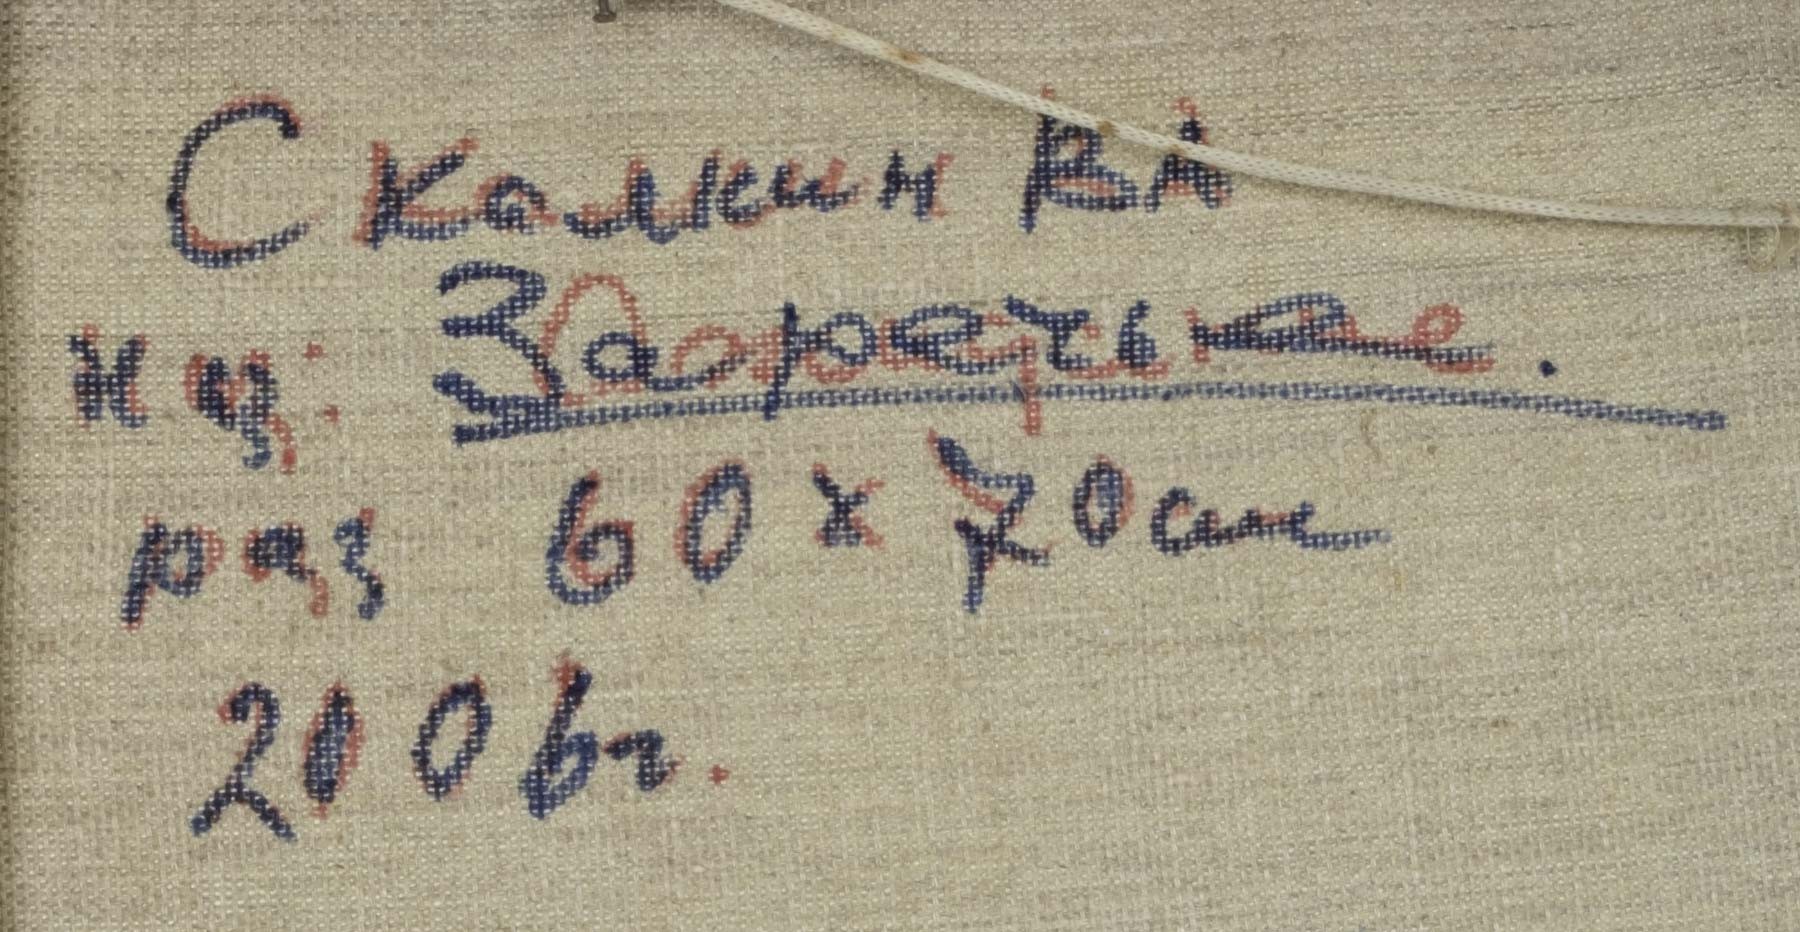 Скамкин ВА
наз: Заречье.
раз 60 х 70см
2006г.